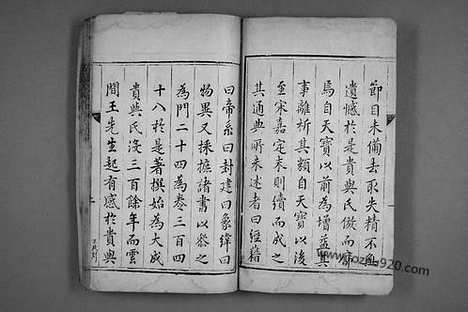 節目未備去取失精不無
遺憾於是貴與氏倣而廣
焉自天寶以前為增益其
事離析其類自天寶以後
至宋嘉定末則續而成之
其通典所未述者曰經籍
曰帝系曰封建曰象緯曰
物異又採摭諸書以參之
為門二十四為卷三百四
十八於是著撰始為大成
貴與氏沒三百餘年而雲
間王先生起有感於貴與
920.com